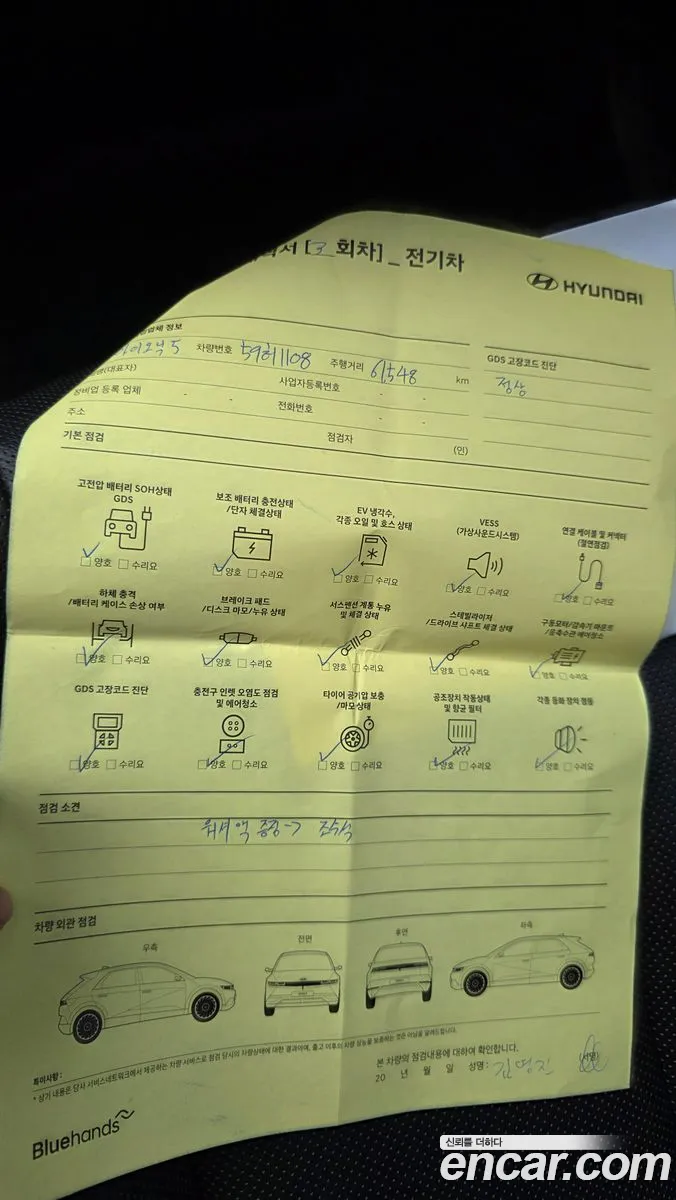 [3 회차] _ 전기차
HYUNDAI
업체 정보
아이오닉 5 차량번호 59허1108 주행거리 61,548 km
GDS 고장코드 진단
정상
(대표자) 사업자등록번호 - -
정비업 등록 업체 - - 전화번호 - -
주소
기본 점검 점검자 (인)
고전압 배터리 SOH상태
GDS
보조 배터리 충전상태
/단자 체결상태
EV 냉각수,
각종 오일 및 호스 상태
VESS
(가상사운드시스템)
연결 케이블 및 커넥터
(절연점검)
양호 수리요 양호 수리요 양호 수리요 양호 수리요 양호 수리요
하체 충격
/배터리 케이스 손상 여부
브레이크 패드
/디스크 마모/누유 상태
서스펜션 계통 누유
및 체결 상태
스테빌라이저
/드라이브 샤프트 체결 상태
구동모터/감속기 마운트
/응축수관 에어청소
양호 수리요 양호 수리요 양호 수리요 양호 수리요 양호 수리요
GDS 고장코드 진단
충전구 인렛 오염도 점검
및 에어청소
타이어 공기압 보충
/마모상태
공조장치 작동상태
및 향균 필터
각종 등화 장치 점등
양호 수리요 양호 수리요 양호 수리요 양호 수리요 양호 수리요
점검 소견
워셔액 증정 -> 조수석
차량 외관 점검
우측 전면 후면 좌측
특이사항 :
* 상기 내용은 당사 서비스네트워크에서 제공하는 차량 서비스로 점검 당시의 차량상태에 대한 결과이며, 출고 이후의 차량 성능을 보증하는 것은 아님을 알려드립니다.
본 차량의 점검내용에 대하여 확인합니다.
20 년 월 일 성명: 김명진 (서명)
Bluehands
신뢰를 더하다
encar.com